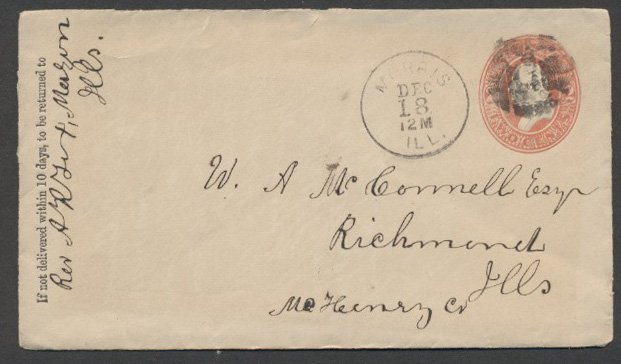 If not delivered within 10 days, to be returned to
Rev A R
Mazon
Ills.
MORRIS
DEC
18
12M
ILL.
TWO CENTS
W. A McConnell Esqr
Richmond
Ills
McHenry Co